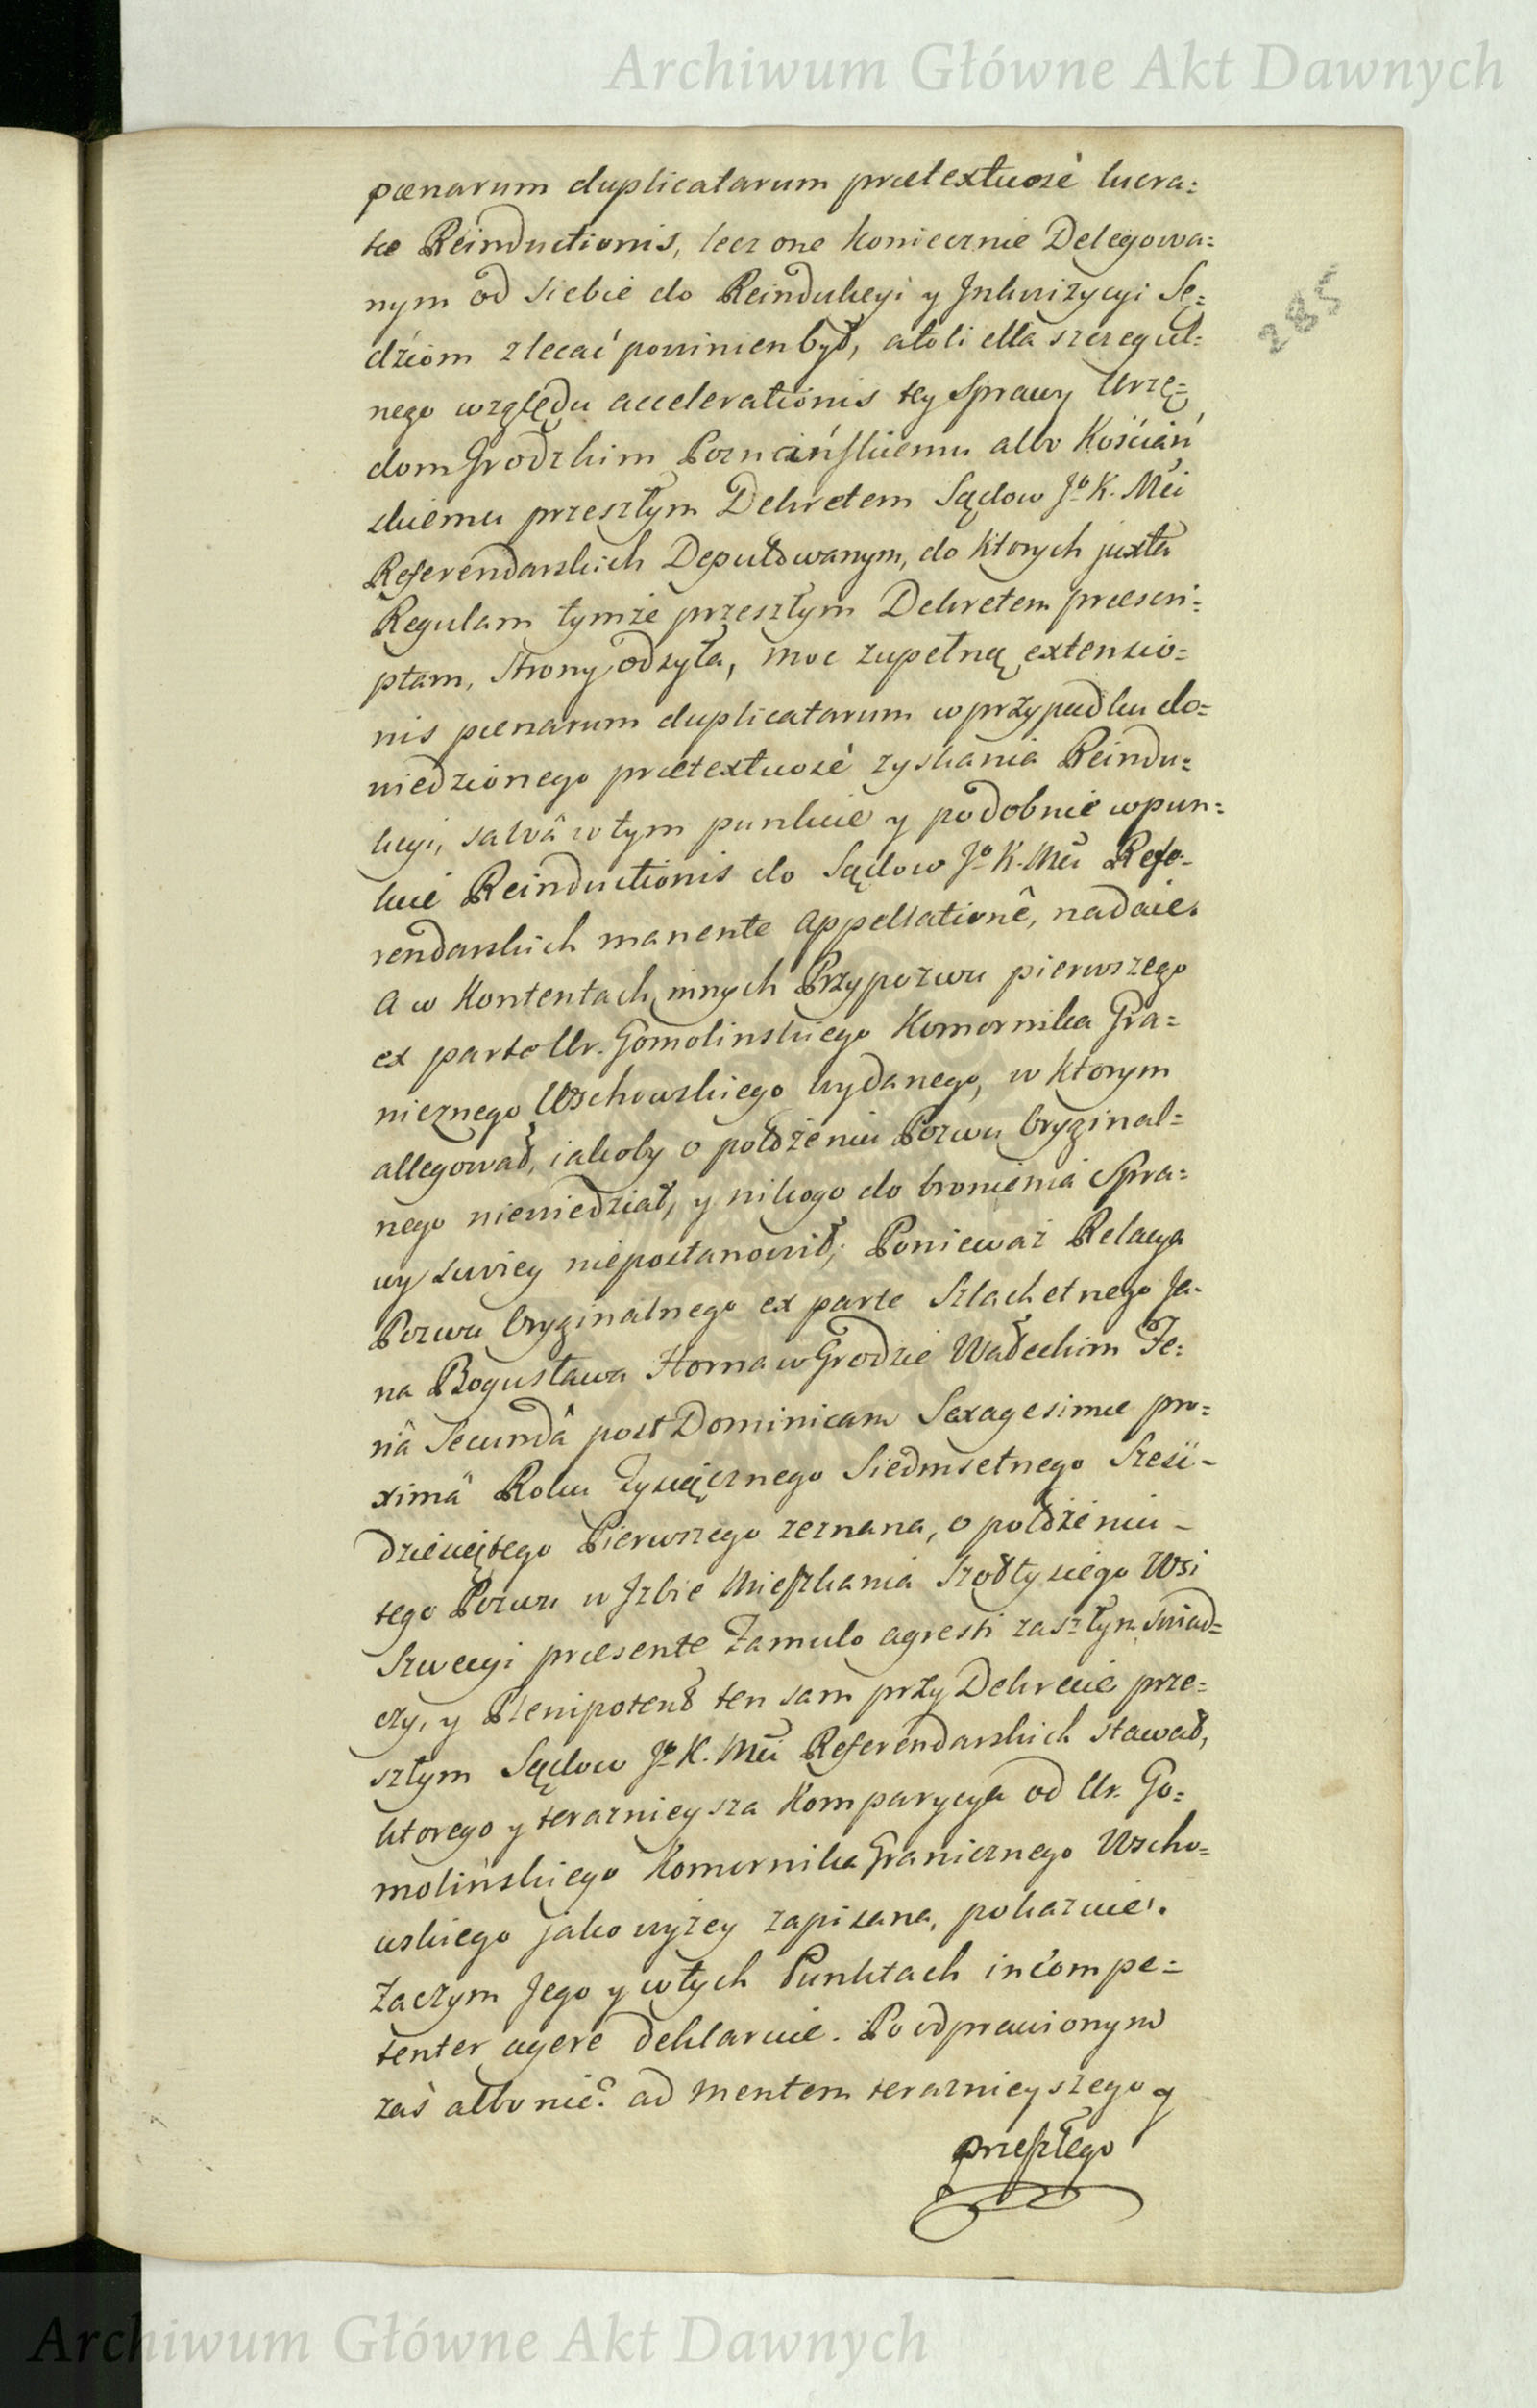 Archiwum Główne Akt Dawnych
pœnarum duplicatarum prætextuosè lucra=
tæ Reinductionis, lecz one koniecznie Delegowa=
nym od siebie do Reindukcyi y Inkwizycyi Sę=
dziom zlecać powinien był, atoli dla szczegul=
nego względu accelerationis tey Sprawy Urzę=
dom Grodzkim Poznańskiemu albo Kościań
skiemu przeszłym Dekretem Sądow Jº K. Mci
Referendarskich Deputowanym, do ktorych juxta
Regulam tymże przeszłym Dekretem præscri=
ptam, Strony odsyła, moc zupełną extensio=
nis pœnarum duplicatarum w przypadku do=
wiedzionego prætextuosè zyskania Reindu=
kcyi, salvâ w tym punkcie y podobnie w pun=
kcie Reinductionis do Sądow Jº K. Mci Refe=
rendarskich manente Appellationê, nadaie.
A w Kontentach innych Przypozwu pierwszego
ex parte Ur. Gomolinskiego Komornika Gra=
nicznego Wschowskiego wydanego, w ktorym
allegował, iakoby o położeniu Pozwu Oryginal=
nego niewiedział, y nikogo do bronienia Spra=
wy swoiey niepostanowił; Ponieważ Relacya
Pozwu Oryginalnego ex parte Szlachetnego Ja=
na Bogusława Horna w Grodzie Wałeckim Fe=
riâ Secundâ post Dominicam Sexagesimæ pro=
ximâ Roku Tysiącznego Siedmsetnego Sześć-
dziesiątego Pierwszego zeznana, o położeniu -
tego Pozwu w Izbie Mieszkania Szołtysiego Wsi
Szwecyi præsente Famulo agresti zaszłym świad=
czy, y Plenipotent ten sam przy Dekrecie prze=
szłym Sądow Jº K. Mci Referendarskich stawał,
ktorego y teraznieysza Komparycya od Ur. Go=
molińskiego Komornika Granicznego Wscho=
wskiego jako wyżey zapisana, pokazuie.
Zaczym Jego y w tych Punktach incompe=
tenter agere deklaruie. Po odprawionym
zaś albo nie? ad mentem teraznieyszego y
przeszłego
285
Archiwum Główne Akt Dawnych